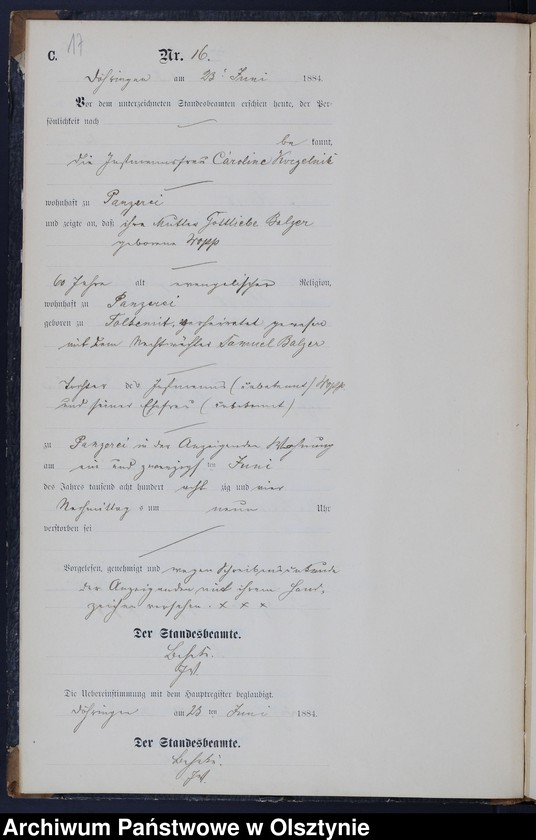 17
C.
Nr. 16.
Döhringen am 23ten Juni 1884.
Vor dem unterzeichneten Standesbeamten erschien heute, der Per-
sönlichkeit nach
be kannt,
die Instmannsfrau Caroline
wohnhaft zu Panzerei
und zeigte an, daß ihre Mutter Gottliebe Balzer
geborene Wopp
60 Jahre alt evangelischer Religion,
wohnhaft zu Panzerei
geboren zu verheiratet gewesen
mit dem Nachtwächter Samuel Balzer
Tochter des Instmanns (unbekannt) Wopp
und seiner Ehefrau (unbekannt)
zu Panzerei in der Anzeigenden Wohnung
am ein und zwanzigsten Juni
des Jahres tausend acht hundert acht zig und vier
Nachmittags um neun Uhr
verstorben sei
Vorgelesen, genehmigt und wegen Schreibensunkunde
der Anzeigenden mit ihrem Hand-
zeichen versehen. x x x
Der Standesbeamte.
Die Uebereinstimmung mit dem Hauptregister beglaubigt.
Döhringen am 23 ten Juni 1884.
Der Standesbeamte.
Archiwum Państwowe w Olsztynie